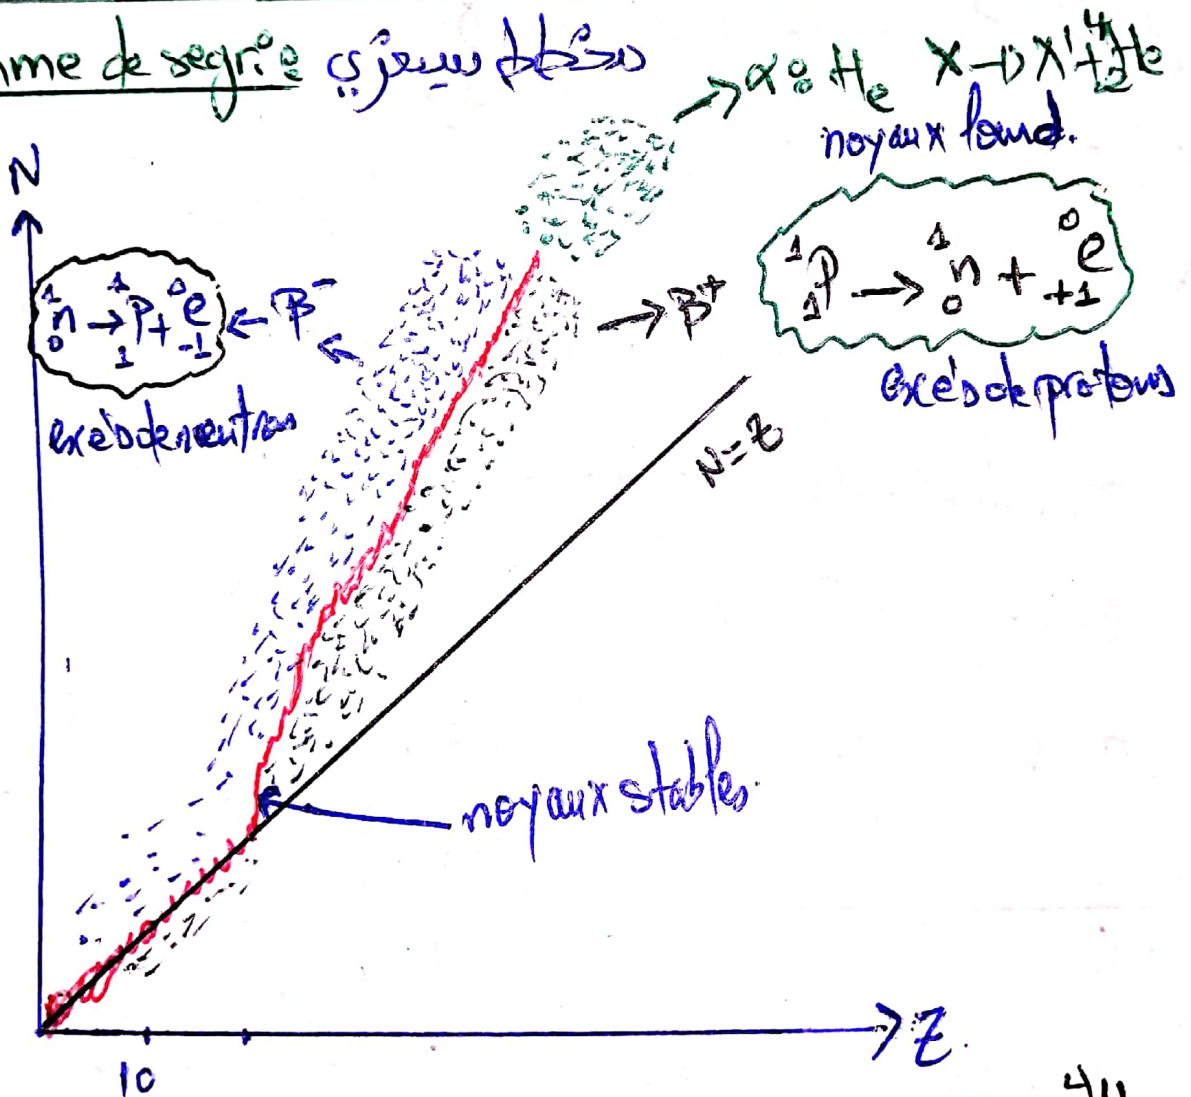 me de segrié مخطط سيغري
→ α : He X → X' + ⁴₂He
noyaux lourd.
N
¹₀n → ¹₁P + ⁰₋₁e ← β⁻
exès de neutrons
→ β⁺
¹₁P → ¹₀n + ⁰₊₁e
excés de protons
N = Z
noyaux stables.
10
Z